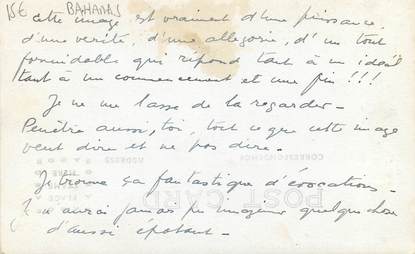 15€ BAHAMAS
cette image est vraiment d'une puissance,
d'une verité, d'une allegorie, d'un tout
formidable qui répond tant à un idéal
tant à un commencement et une fin !!!
Je ne me lasse de la regarder -
Penètre aussi, toi, tout ce que cette image
veut dire et ne pas dire.
CORRESPONDENCE
ADDRESS
PLACE
STAMP
HERE
Je trouve ça fantastique d'évocations -
POST CARD
J'aurai jamais pu imaginer quelque chose
d'aussi épatant -